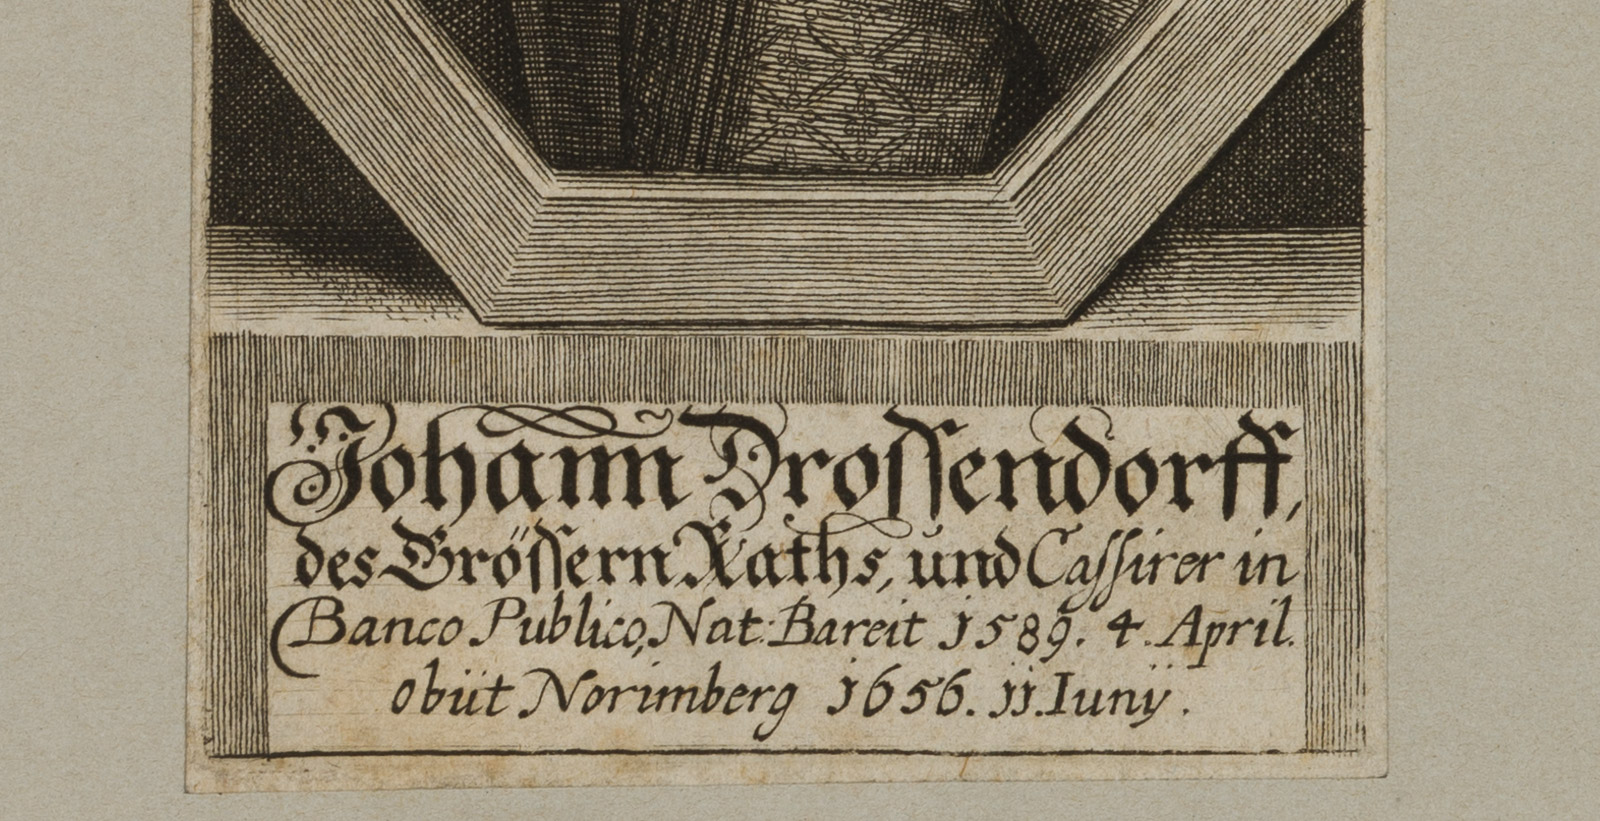 Johann Drossendorff,
des Grössern Raths, und Cassirer in
Banco Publico, Nat: Bareit 1589. 4. April.
obiit Norimberg 1656. 11. Iunÿ.